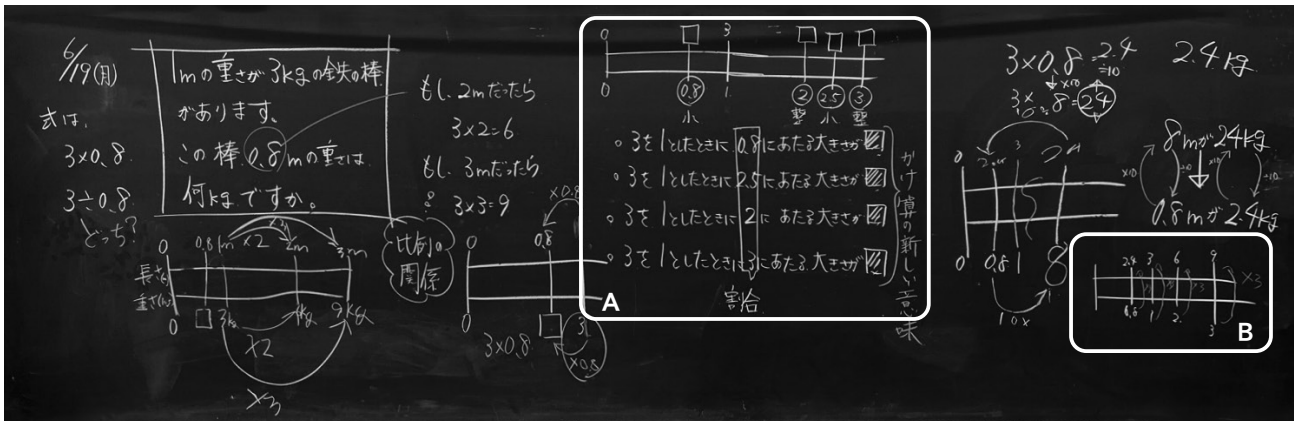 6/19(月)
式は、
3×0.8
3÷0.8
どっち？
1mの重さが3kgの鉄の棒
があります。
この棒0.8mの重さは
何kgですか。
もし、2mだったら
3×2=6
もし、3mだったら
3×3=9
0 0.8 1m ×2 2m 3m
長さ(m)
重さ(kg)
0 □ 3kg 6kg 9kg
×2
×3
比例の
関係
×0.8
0 0.8
0 □ 3
3×0.8
×0.8
0 □ 3 □ □ □
0 0.8 1 2 2.5 3
小 整 小 整
○3を1としたときに0.8にあたる大きさが
○3を1としたときに2.5にあたる大きさが
○3を1としたときに2にあたる大きさが
○3を1としたときに3にあたる大きさが
割合
かけ算の新しい意味
A
3×0.8=2.4
×10 ÷10
3×8=24
2.4kg
0 3 24
0 0.8 1 8
10×
8mが24kg
×10 ÷10 ×10 ÷10
0.8mが2.4kg
2.4 3 6 9
×3
0.8 1 2 3
B